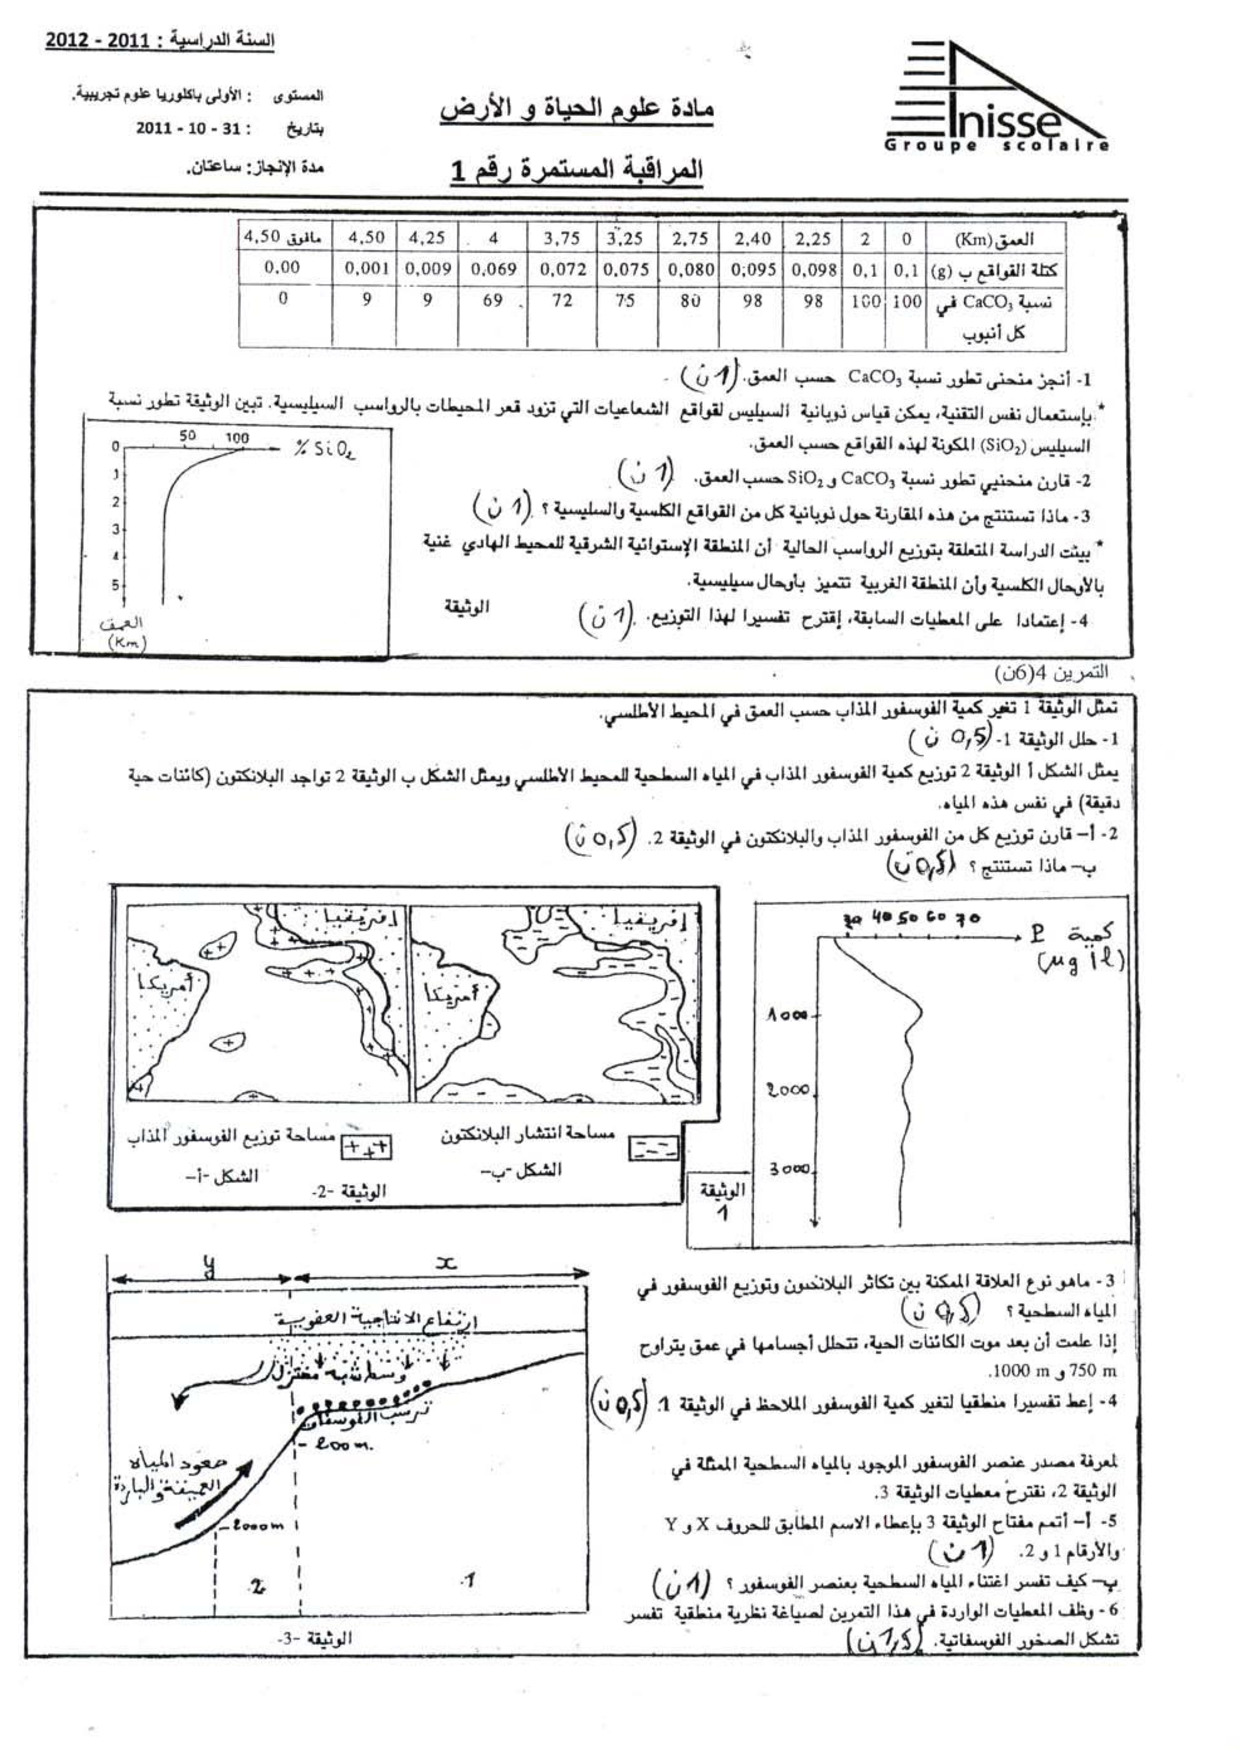 السنة الدراسية : 2011 - 2012
المستوى : الأولى باكلوريا علوم تجريبية.
بتاريخ : 31 - 10 - 2011
مدة الإنجاز: ساعتان.
مادة علوم الحياة و الأرض
المراقبة المستمرة رقم 1
Anisse
Groupe scolaire
العمق (Km) 0 2 2,25 2,40 2,75 3,25 3,75 4 4,25 4,50 مافوق 4,50
كتلة القواقع ب (g) 0,1 0,1 0,098 0,095 0,080 0,075 0,072 0,069 0,009 0,001 0,00
نسبة CaCO₃ في كل أنبوب 100 100 98 98 80 75 72 69 9 9 0
1- أنجز منحنى تطور نسبة CaCO₃ حسب العمق. (1 ن)
* بإستعمال نفس التقنية، يمكن قياس ذوبانية السيليس لقواقع الشعاعيات التي تزود قعر المحيطات بالرواسب السيليسية. تبين الوثيقة تطور نسبة
السيليس (SiO₂) المكونة لهذه القواقع حسب العمق.
2- قارن منحنيي تطور نسبة CaCO₃ و SiO₂ حسب العمق. (1 ن)
3- ماذا تستنتج من هذه المقارنة حول ذوبانية كل من القواقع الكلسية والسليسية ؟ (1 ن)
* بينت الدراسة المتعلقة بتوزيع الرواسب الحالية أن المنطقة الإستوائية الشرقية للمحيط الهادي غنية
بالأوحال الكلسية وأن المنطقة الغربية تتميز بأوحال سيليسية.
4- إعتمادا على المعطيات السابقة، إقترح تفسيرا لهذا التوزيع. (1 ن)
الوثيقة
50 100 % SiO₂
0
1
2
3
4
5
العمق
(Km)
التمرين 4(6ن)
تمثل الوثيقة 1 تغير كمية الفوسفور المذاب حسب العمق في المحيط الأطلسي.
1- حلل الوثيقة 1- (0,5 ن)
يمثل الشكل أ الوثيقة 2 توزيع كمية الفوسفور المذاب في المياه السطحية للمحيط الأطلسي ويمثل الشكل ب الوثيقة 2 تواجد البلانكتون (كائنات حية
دقيقة) في نفس هذه المياه.
2- أ– قارن توزيع كل من الفوسفور المذاب والبلانكتون في الوثيقة 2. (0,5 ن)
ب– ماذا تستنتج ؟ (0,5 ن)
إفريقيا
أمريكا
إفريقيا
أمريكا
مساحة انتشار البلانكتون
مساحة توزيع الفوسفور المذاب
الشكل -ب–
الشكل -أ–
الوثيقة -2-
30 40 50 60 70
كمية P
(µg/l)
1000
2000
3000
الوثيقة
1
3- ماهو نوع العلاقة الممكنة بين تكاثر البلانكتون وتوزيع الفوسفور في
المياه السطحية ؟ (0,5 ن)
إذا علمت أن بعد موت الكائنات الحية، تتحلل أجسامها في عمق يتراوح
750 m و 1000 m.
4- إعط تفسيرا منطقيا لتغير كمية الفوسفور الملاحظ في الوثيقة 1. (0,5 ن)
لمعرفة مصدر عنصر الفوسفور الموجود بالمياه السطحية الممثلة في
الوثيقة 2، نقترح معطيات الوثيقة 3.
5- أ– أتمم مفتاح الوثيقة 3 بإعطاء الاسم المطابق للحروف X و Y
والأرقام 1 و 2. (1 ن)
ب– كيف تفسر اغتناء المياه السطحية بعنصر الفوسفور ؟ (1 ن)
6- وظف المعطيات الواردة في هذا التمرين لصياغة نظرية منطقية تفسر
تشكل الصخور الفوسفاتية. (1,5 ن)
y x
ارتفاع الانتاجية العضوية
وسط شبه مختزل
ترسب الفوسفات
-200m.
صعود المياه
العميقة والباردة
-2000m
2 1
الوثيقة -3-